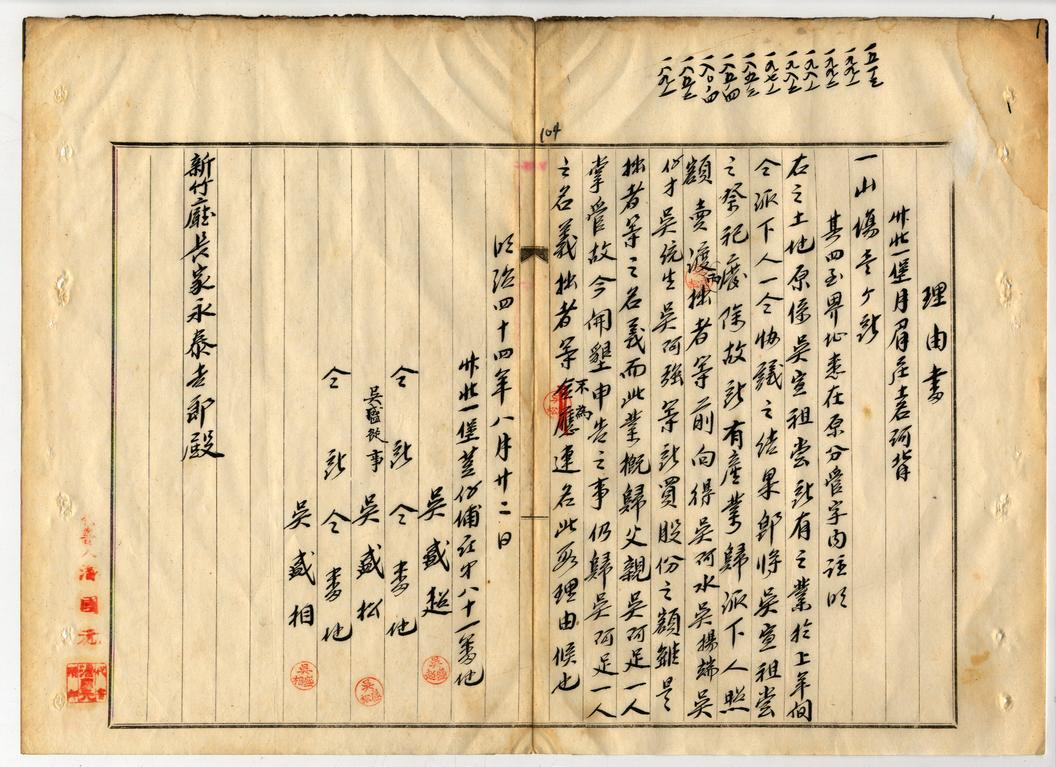 一五一三
一九九一
一九九二
一九八一
一九八二
一九七一
一八五三
一八五四
一八〇四
一八五二
一九一
104
理由書
竹北一堡月眉庄土名河背
一山場壱ケ所
其四至界址悉在原分管字內註明
右之土地原係吳宣祖嘗所有之業於上年间
仝派下人一仝恊議之結果即将吳宣祖嘗
之祭祀廢除故所有產業歸派下人照
額賣渡拙者等前向得吳阿水吳揚端吳
吳統生吳阿强等所買股份之額雖是
拙者等之名義而此業概歸父親吳阿足一人
掌管故今開墾申告之事仍歸吳阿足一人
之名義拙者等不為連名此段理由候也
明治四十四年八月廿二日
竹北一堡 庄八十一番地
吳盛超
仝所仝番地
吳盛從事
吳盛松
仝所仝番地
吳盛相
新竹廳長家永泰吉郎殿
潘國